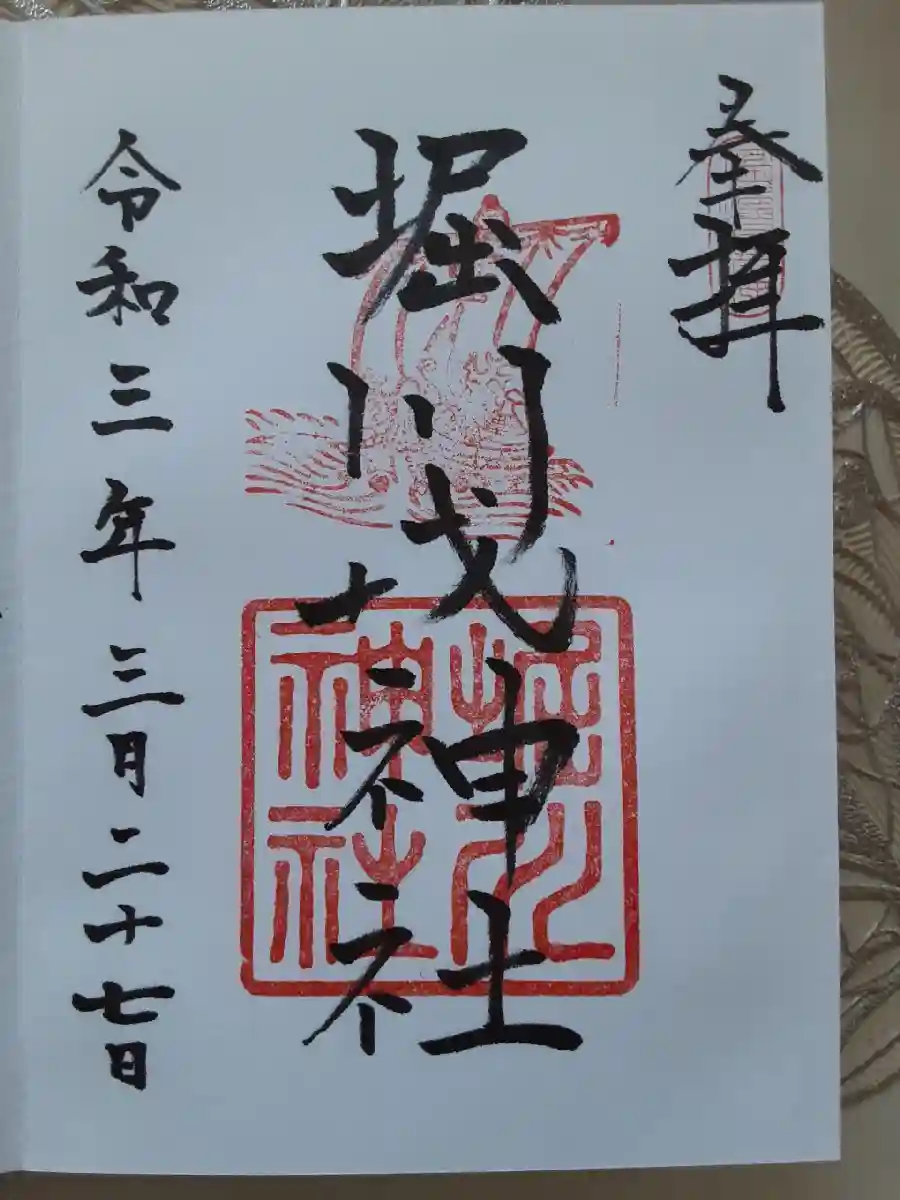 奉拝
堀川戎神社
令和三年三月二十七日
堀川
神社